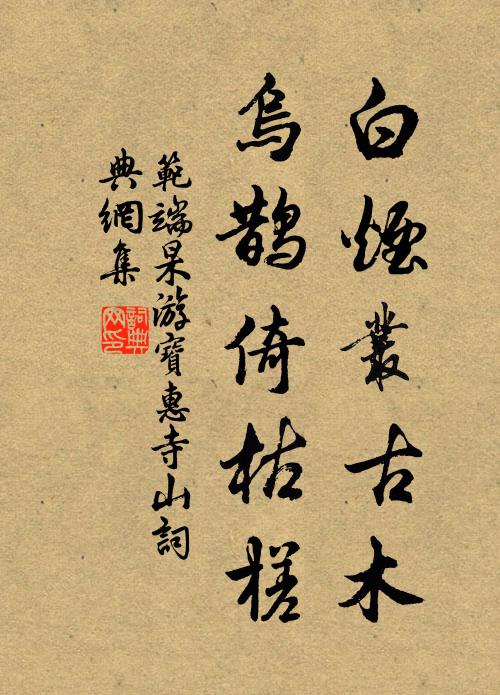 白煙叢古木
烏鵲倚枯槎
範端杲游寶惠寺山詞
典網集
詞典網印